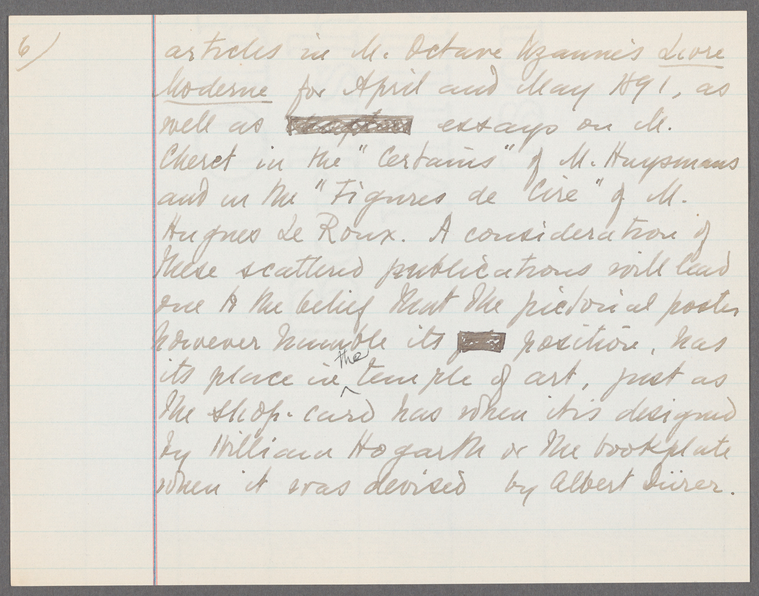 6)
articles in M. Octave Uzanne's Livre
Moderne for April and May 1891, as
well as essays on M.
Cheret in the "Certains" of M. Huysmans
and in the "Figures de Cire" of M.
Hugues Le Roux. A consideration of
these scattered publications will lead
one to the belief that the pictorial poster
however humble its position, has
its place in the temple of art, just as
the shop-card has when it is designed
by William Hogarth or the bookplate
when it was devised by Albert Dürer.